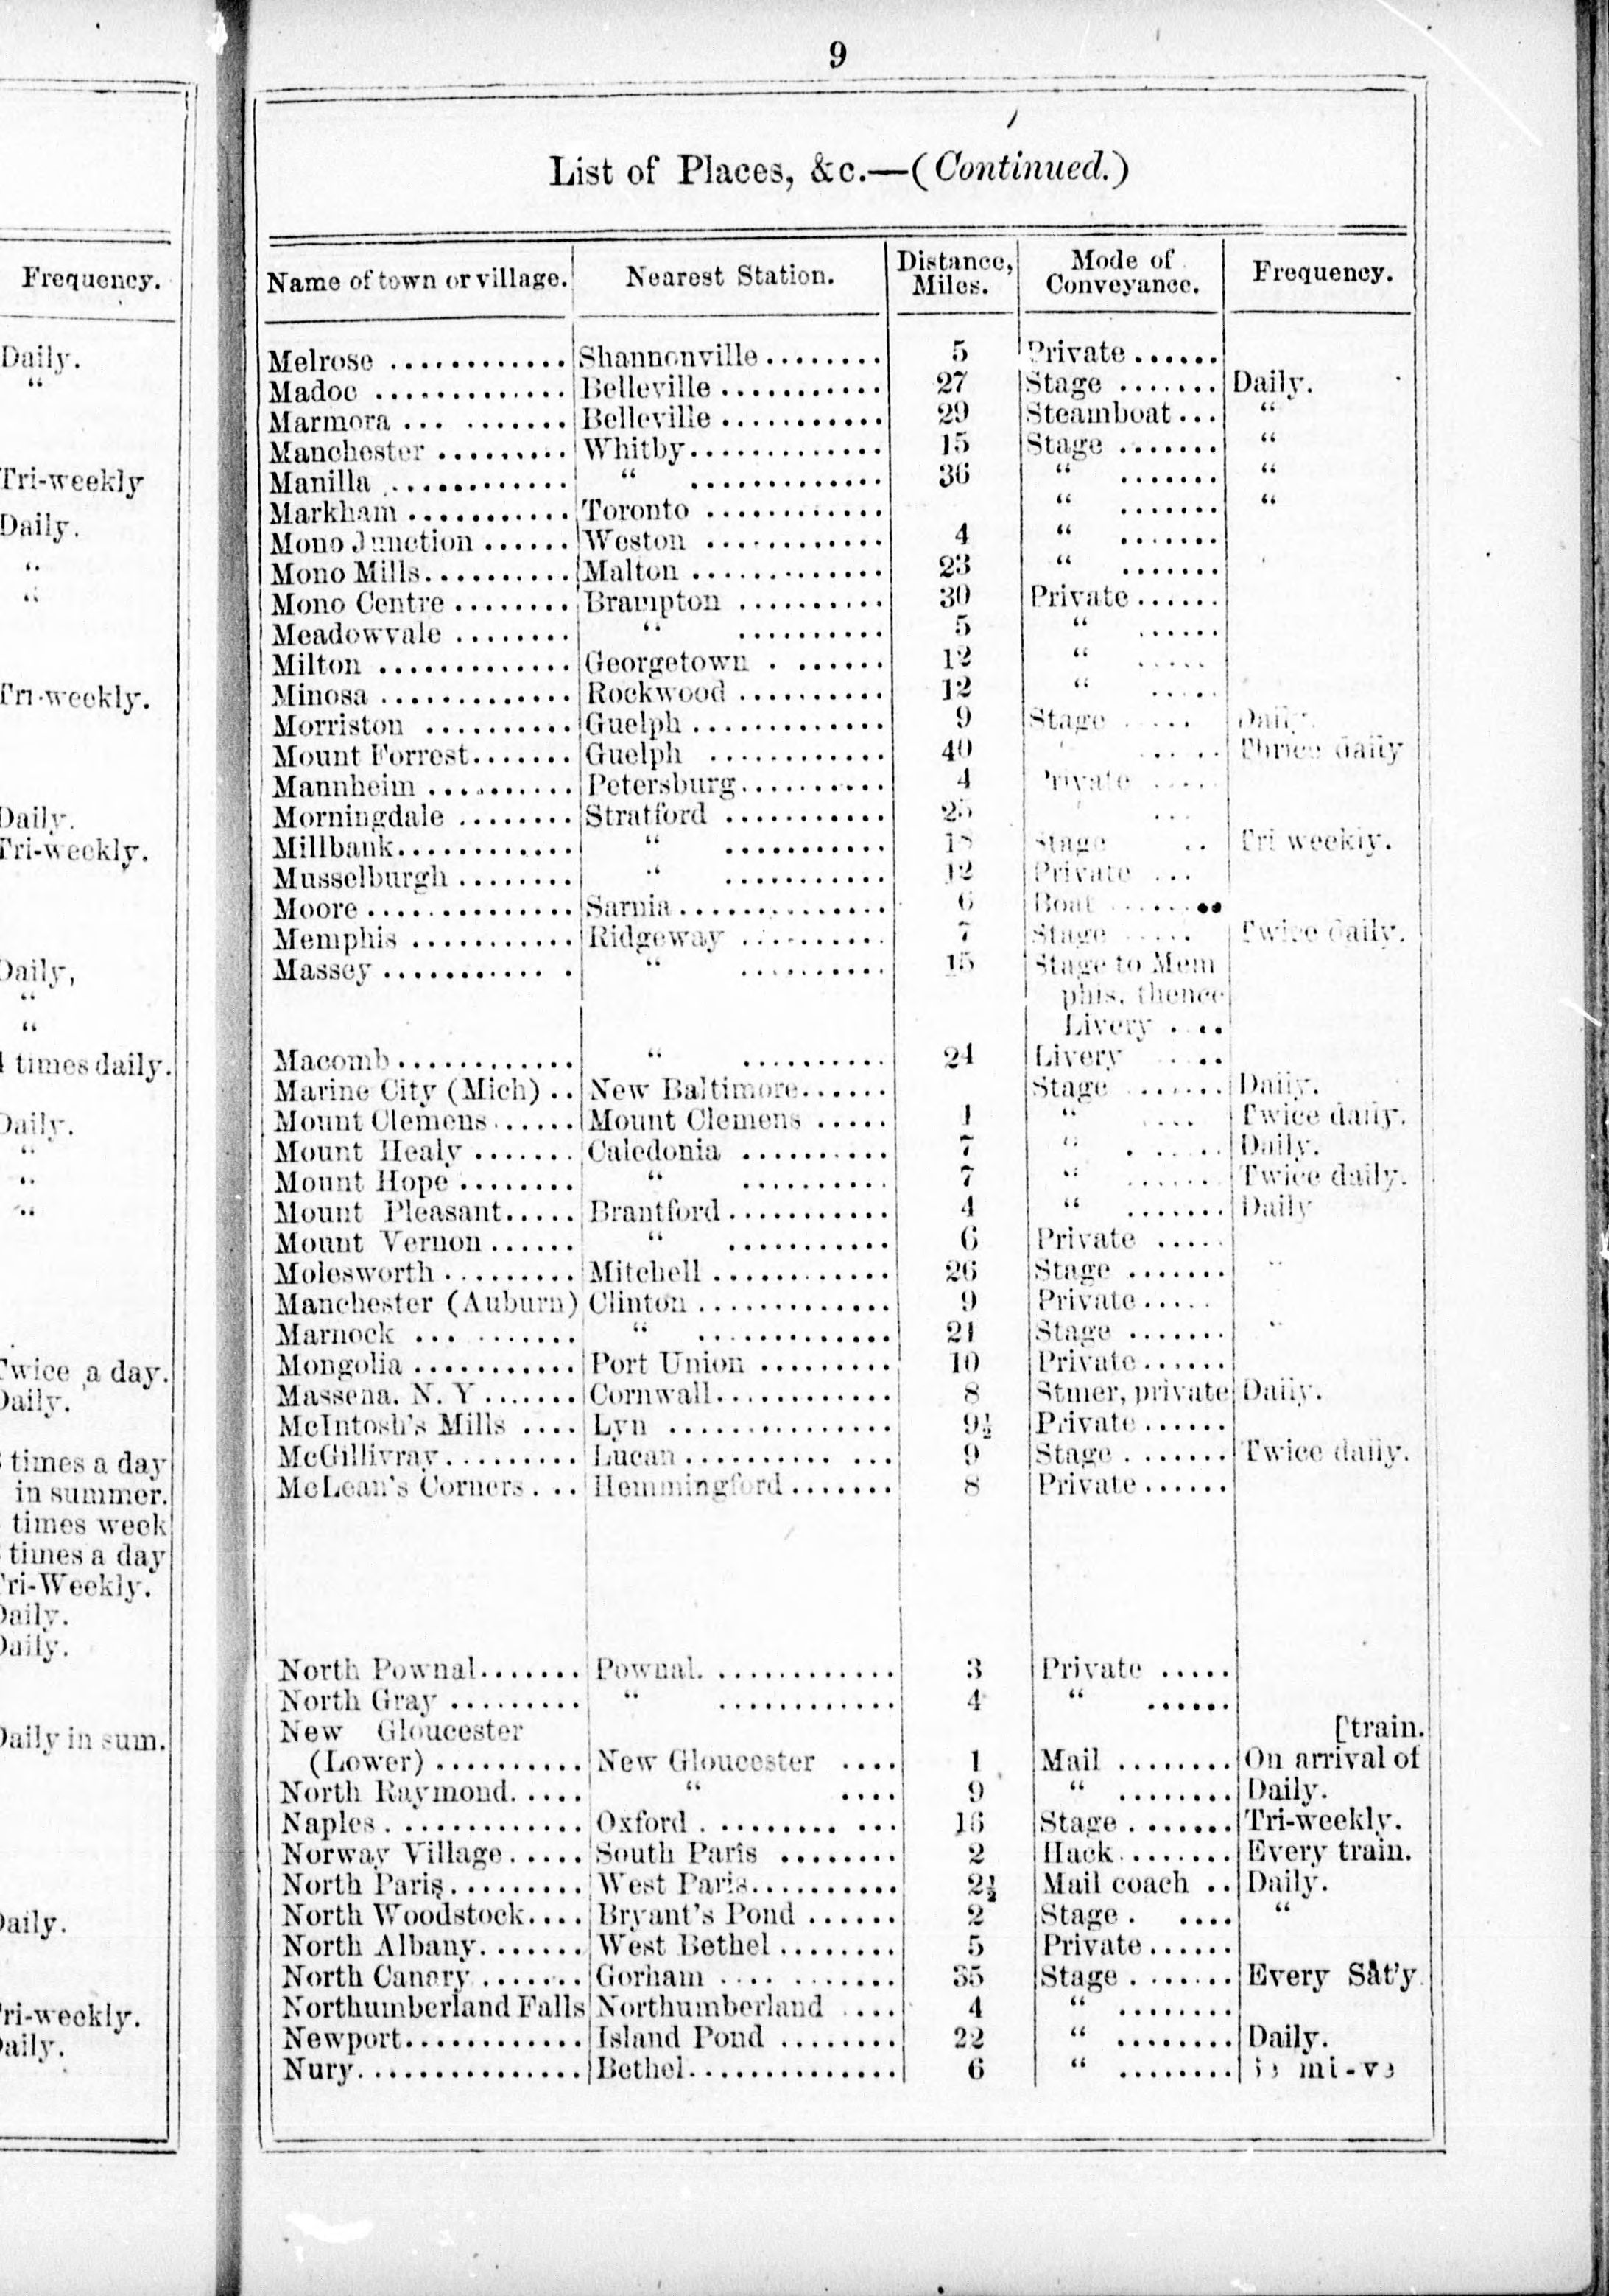 9
List of Places, &c.—(Continued.)
Name of town or village. Nearest Station. Distance, Miles. Mode of Conveyance. Frequency.
Melrose ............ Shannonville ........ 5 Private ......
Madoc .............. Belleville ........... 27 Stage ....... Daily.
Marmora ... ....... Belleville ........... 29 Steamboat ... “
Manchester ......... Whitby ............. 15 Stage ....... “
Manilla ............ “ ............. 36 “ ....... “
Markham ........... Toronto ............ “ ....... “
Mono Junction ...... Weston ............ 4 “ .......
Mono Mills.......... Malton ............. 23 “ .......
Mono Centre ........ Brampton .......... 30 Private ......
Meadowvale ........ “ .......... 5 “ ......
Milton ............. Georgetown . ...... 12 “ .....
Minosa ............. Rockwood .......... 12 “ .....
Morriston .......... Guelph ............. 9 Stage ..... Daily.
Mount Forrest....... Guelph ............ 40 ..... Thrice daily
Mannheim .......... Petersburg.......... 4 Private .....
Morningdale ........ Stratford ........... 25 ...
Millbank............ “ ........... 18 Stage .. Tri weekly.
Musselburgh ........ “ ........... 12 Private ...
Moore .............. Sarnia .............. 6 Boat ........
Memphis ........... Ridgeway .......... 7 Stage ..... Twice daily.
Massey ........... . “ .......... 15 Stage to Mem
phis, thence
Livery ....
Macomb ............ “ .......... 24 Livery ....
Marine City (Mich) .. New Baltimore...... Stage ....... Daily.
Mount Clemens ...... Mount Clemens ..... 1 “ .... Twice daily.
Mount Healy ....... Caledonia .......... 7 “ . ...... Daily.
Mount Hope ........ “ .......... 7 “ ...... Twice daily.
Mount Pleasant..... Brantford ........... 4 “ ....... Daily
Mount Vernon ...... “ ........... 6 Private .....
Molesworth ......... Mitchell ............ 26 Stage ....... “
Manchester (Auburn) Clinton ............. 9 Private .....
Marnock ... ....... “ ............. 21 Stage ....... “
Mongolia ........... Port Union ......... 10 Private ......
Massena. N. Y ....... Cornwall ............ 8 Stmer, private Daily.
McIntosh's Mills .... Lyn ............... 9½ Private ......
McGillivray ......... Lucan .......... ... 9 Stage ....... Twice daily.
McLean's Corners . .. Hemmingford ....... 8 Private ......
North Pownal....... Pownal. ............ 3 Private .....
North Gray ......... “ ............ 4 “ ......
New Gloucester [train.
(Lower) .......... New Gloucester .... 1 Mail ........ On arrival of
North Raymond. .... “ .... 9 “ ........ Daily.
Naples . ............ Oxford . ........ ... 16 Stage ....... Tri-weekly.
Norway Village ..... South Paris ........ 2 Hack ........ Every train.
North Paris ......... West Paris .......... 2½ Mail coach .. Daily.
North Woodstock.... Bryant's Pond ...... 2 Stage . .... “
North Albany ....... West Bethel ........ 5 Private ......
North Canary ....... Gorham .... ....... 35 Stage ....... Every Sat'y.
Northumberland Falls Northumberland .... 4 “ ........
Newport............ Island Pond ........ 22 “ ........ Daily.
Nury............... Bethel.............. 6 “ ........
Frequency.
Daily.
“
Tri-weekly
Daily.
“
“
Tri-weekly.
Daily.
Tri-weekly.
Daily,
“
“
times daily.
Daily.
“
“
“
Twice a day.
Daily.
times a day
in summer.
times week
times a day
Tri-Weekly.
Daily.
Daily.
Daily in sum.
Daily.
Tri-weekly.
Daily.